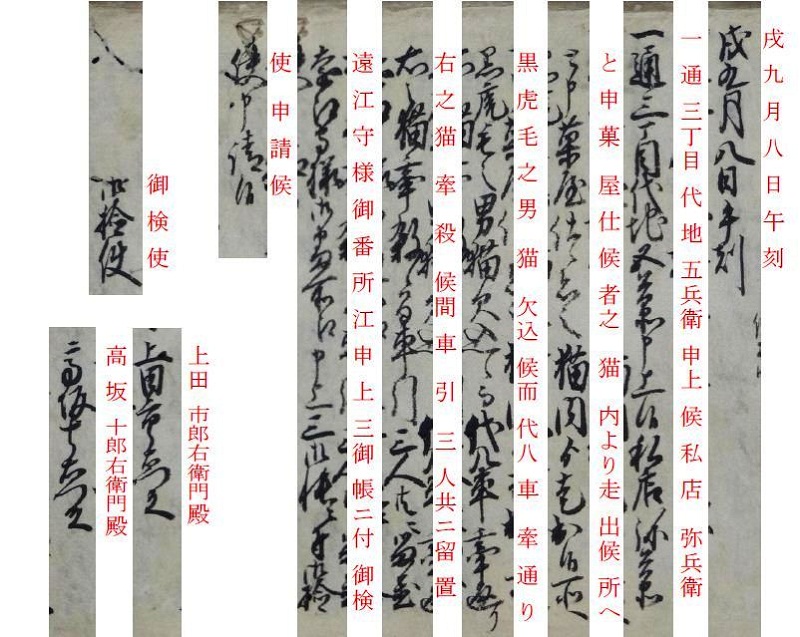 戌九月八日午刻
一通三丁目代地五兵衛申上候私店弥兵衛
と申菓屋仕候者之猫内より走出候所へ
黒虎毛之男猫欠込候而代八車牽通り
右之猫牽殺候間車引三人共ニ留置
遠江守様御番所江申上三御帳ニ付御検
使申請候
御検使
上田市郎右衛門殿
高坂十郎右衛門殿